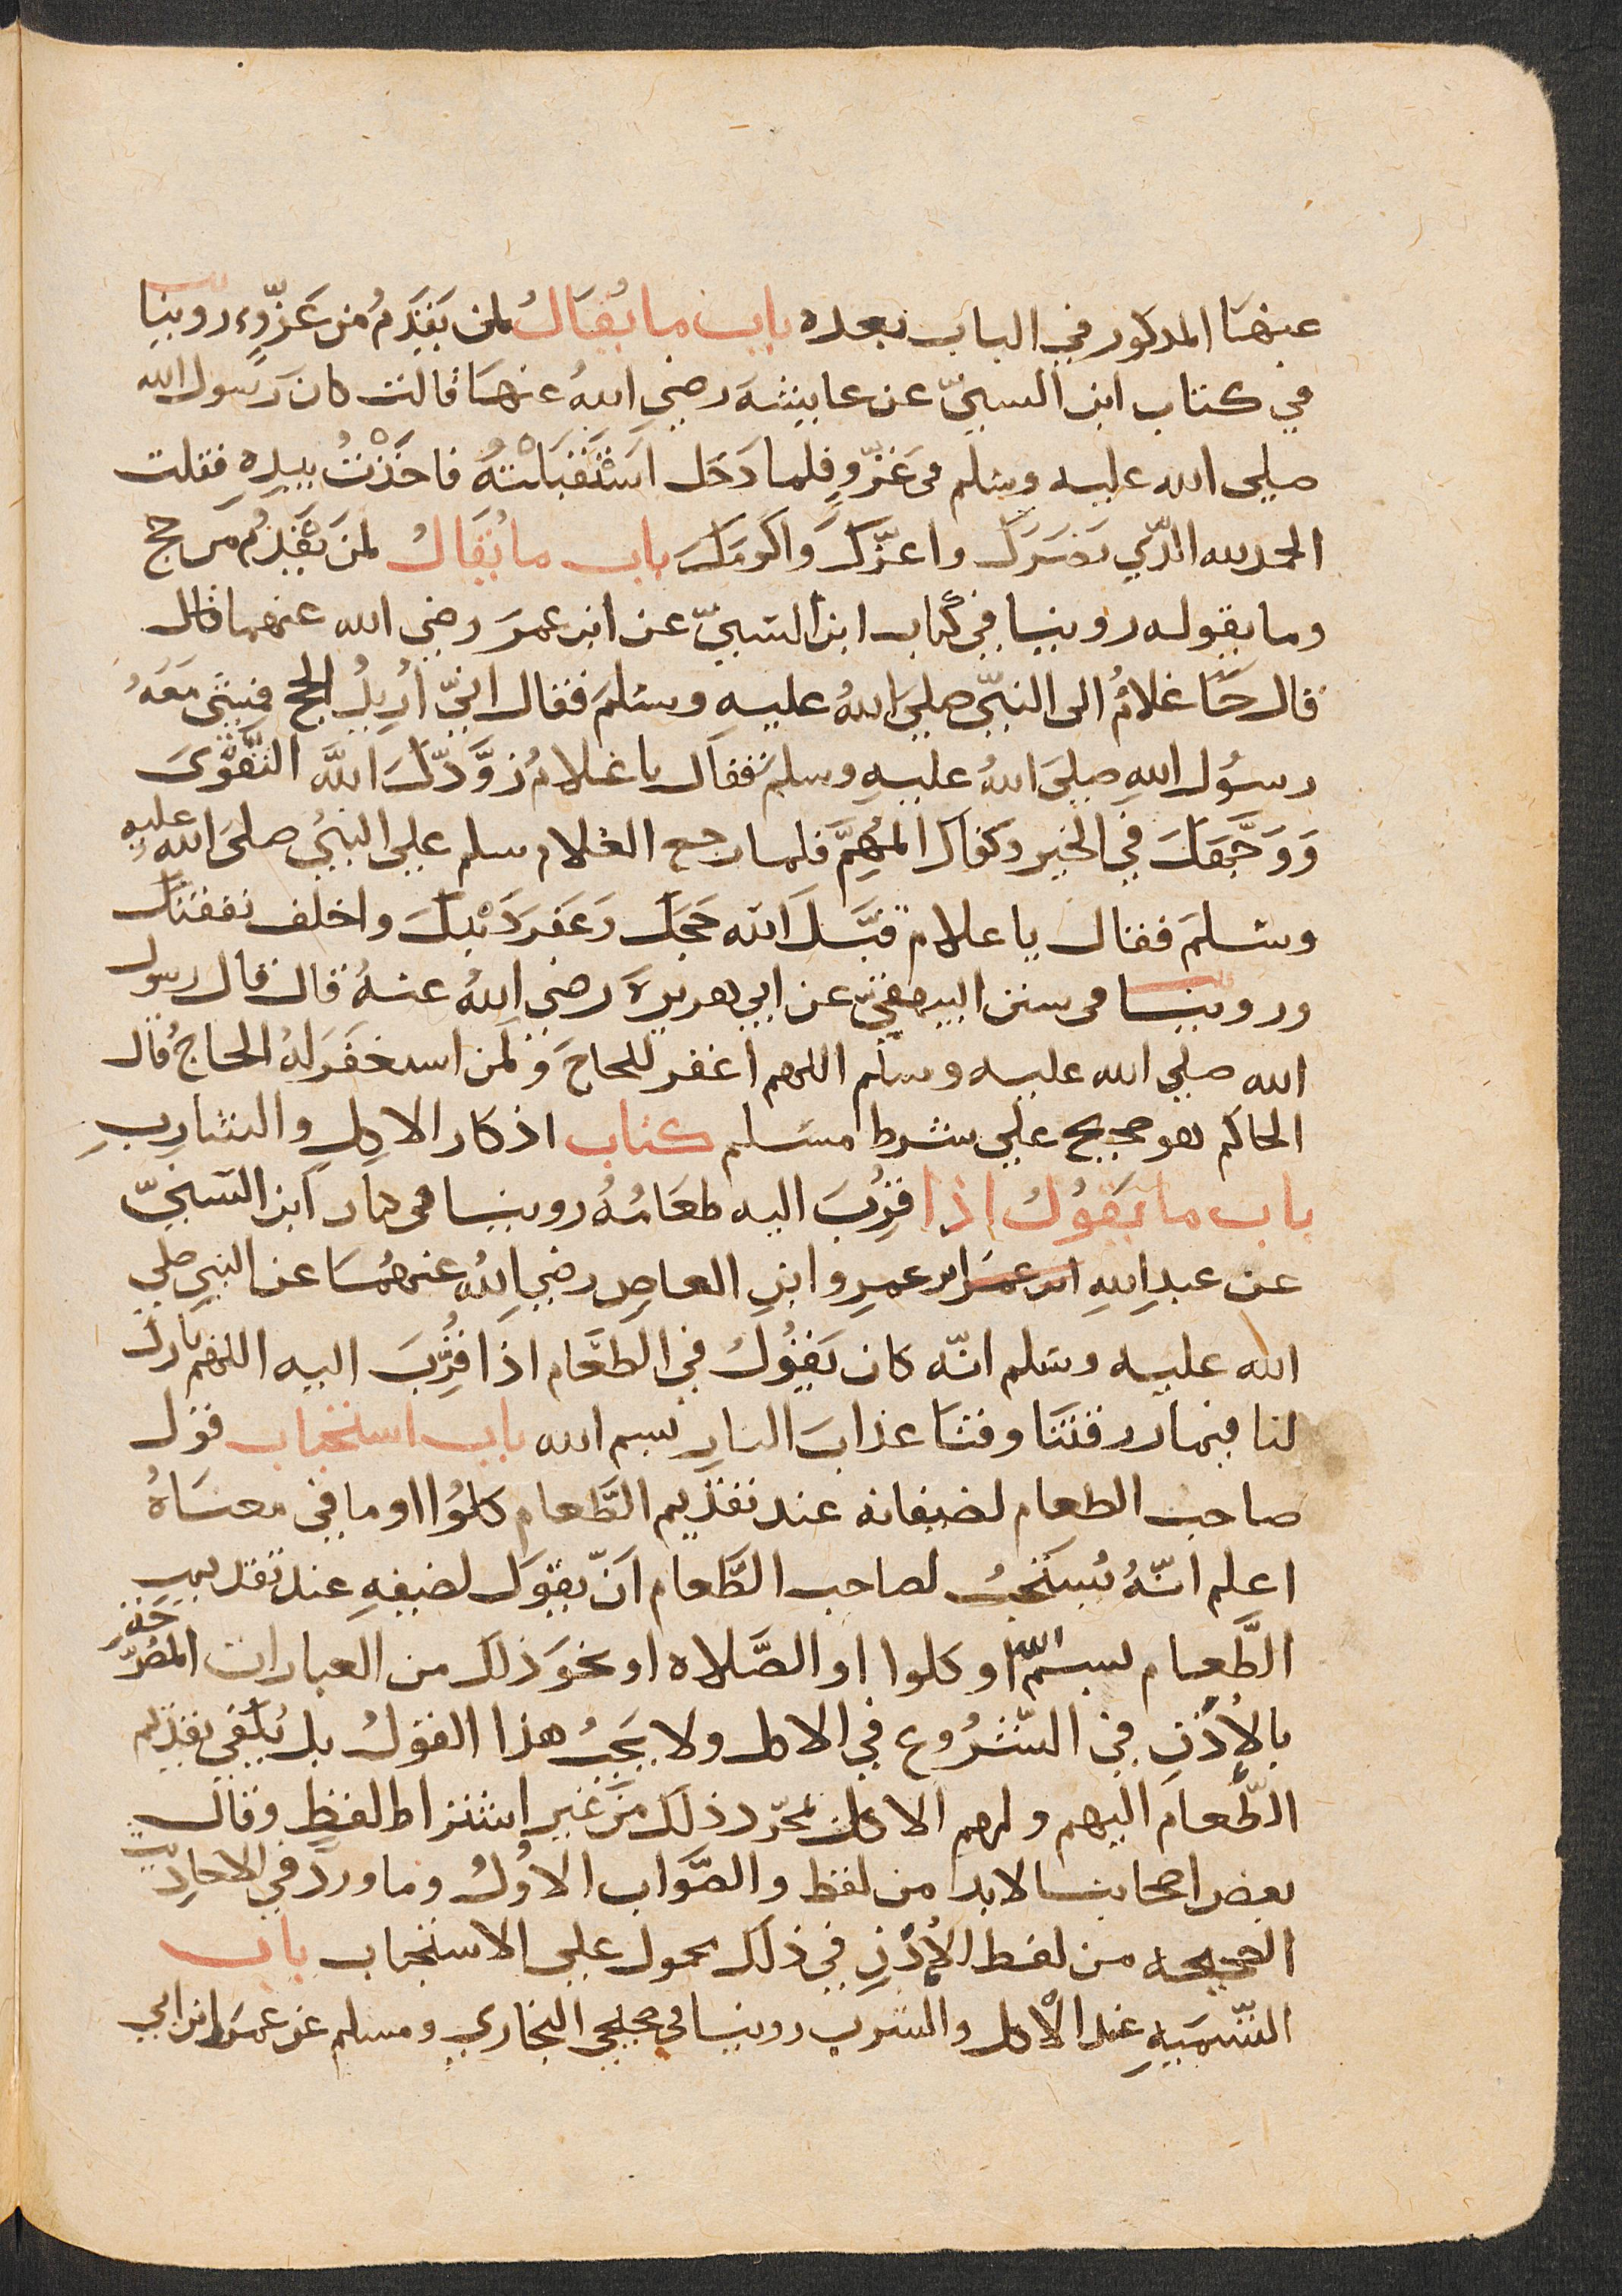 عنها المذكور في الباب بعده باب ما يُقالُ لمن يَقدَمُ من غَزوٍ روينا
في كتاب ابن السنيّ عن عايشة رضي اللهُ عنها قالت كان رَسول الله
صلى الله عليه وسلم في غَزوٍ فلما دَخل استَقبَلْتهُ فاخَذْتُ بيدِهِ فقلت
الحمد لله الّذي نَصَرَكَ واعزّكَ وَاكرمَكَ باب ما يُقَالُ لمن يَقْدَمُ من حج
وما يقوله روينا في كتاب ابن السنيّ عن ابن عمرَ رضي الله عنهما قال
قال جَا غلامُ الى النبيّ صلى اللهُ عليهِ وسلمَ فقال انيّ أُرِيدُ الحج فمشى مَعَهُ
رسُول اللهِ صلى اللهُ عليهِ وسلمَ فقال يا غلامُ زَوَّدَّكَ اللهَّ التَّقْوَى
وَوَجَّهَكَ في الخير وكفاك المُهِمَّ فلما رجع الغلام سلم على النبيُ صلى الله عليه
وسلمَ فقال يا غلام قَبَّلَ الله حَجكَ وَغفَر ذَنْبكَ واخلف نفقتكَ
وروينا في سنن البيهقيّ عن ابي هريرةَ رضي اللهُ عنهُ قال قال رسول
الله صلي الله عليه وسلم اللهم اغفر للحاجَ ولمن استغفَر لهُ الحاجُ قال
الحاكم هو صحيح على شرط مسلم كتاب اذكار الاكلِ والشاربِ
باب ما يَقوُلُ اذا قرُبَ اليه طعَامُهُ روينا في كتاب ابن السنيّ
عن عبدِ اللهِ ابن عمرَ ابن عمرِو ابنِ العاص رضي اللهُ عنهُمَا عن النبي صلي
الله عليه وسلم انّه كان يَقوُلُ في الطَّعَام اذا قُرِّبَ اليه اللهم بارك
لنا فيما رزقتَنَا وقنَا عذابَ النارِ بسم الله باب استحباب قول
صاحب الطعام لضيفانه عند تقديم الطَّعام كلوُا او ما في معنَاهُ
اعلم انّهُ يُستَحبُ لصاحب الطَّعام انّ يقولَ لضيفهِ عند تقديم
الطَّعام بسم الله او كلوا او الصَّلاه او نحوَ ذلك من العبارات المصُرّحَهِ
بالإُذنِ في الشّرُوع في الاكل ولا يَجبُ هذا القولُ بل يُكفي تقديم
الطّعامَ اليهم ولهم الاكل بمجّرد ذلك من غيرِ اشتراط لفظٍ وقال
بعض اصحابنا لا بد من لفظ والصَّواب الاوُلُ وما وردَ في الاحاديث
الصحيحه من لفظ الإُذنِ في ذلك محمول على الاستحباب باب
التّسَميهِ عند الأكل والشرب روينا في صحيحي البخاري ومسلم عن عمرَ ابن ابي